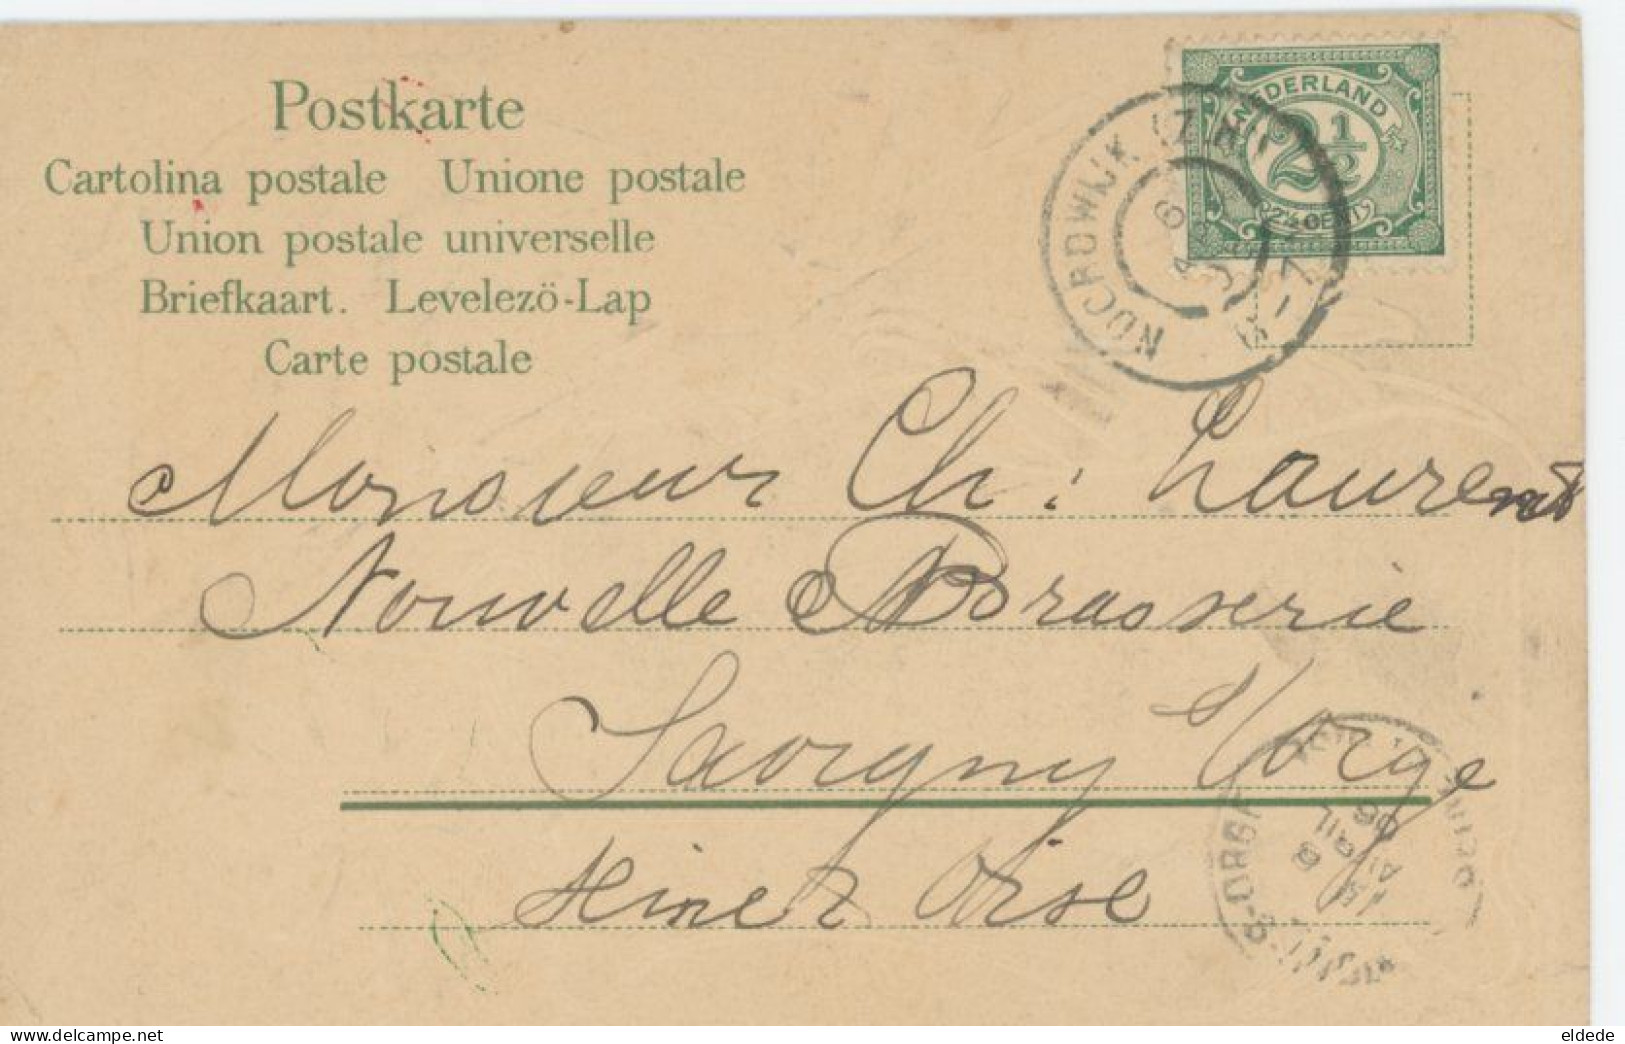 Postkarte
Cartolina postale Unione postale
Union postale universelle
Briefkaart. Levelezö-Lap
Carte postale
NEDERLAND
2½
2½ CENT
NOORDWIJK (Z.H)
Monsieur Ch: Laurent
Nouvelle Brasserie
Savigny s/orge
Seine & Oise
8
AVRIL
06
eldede